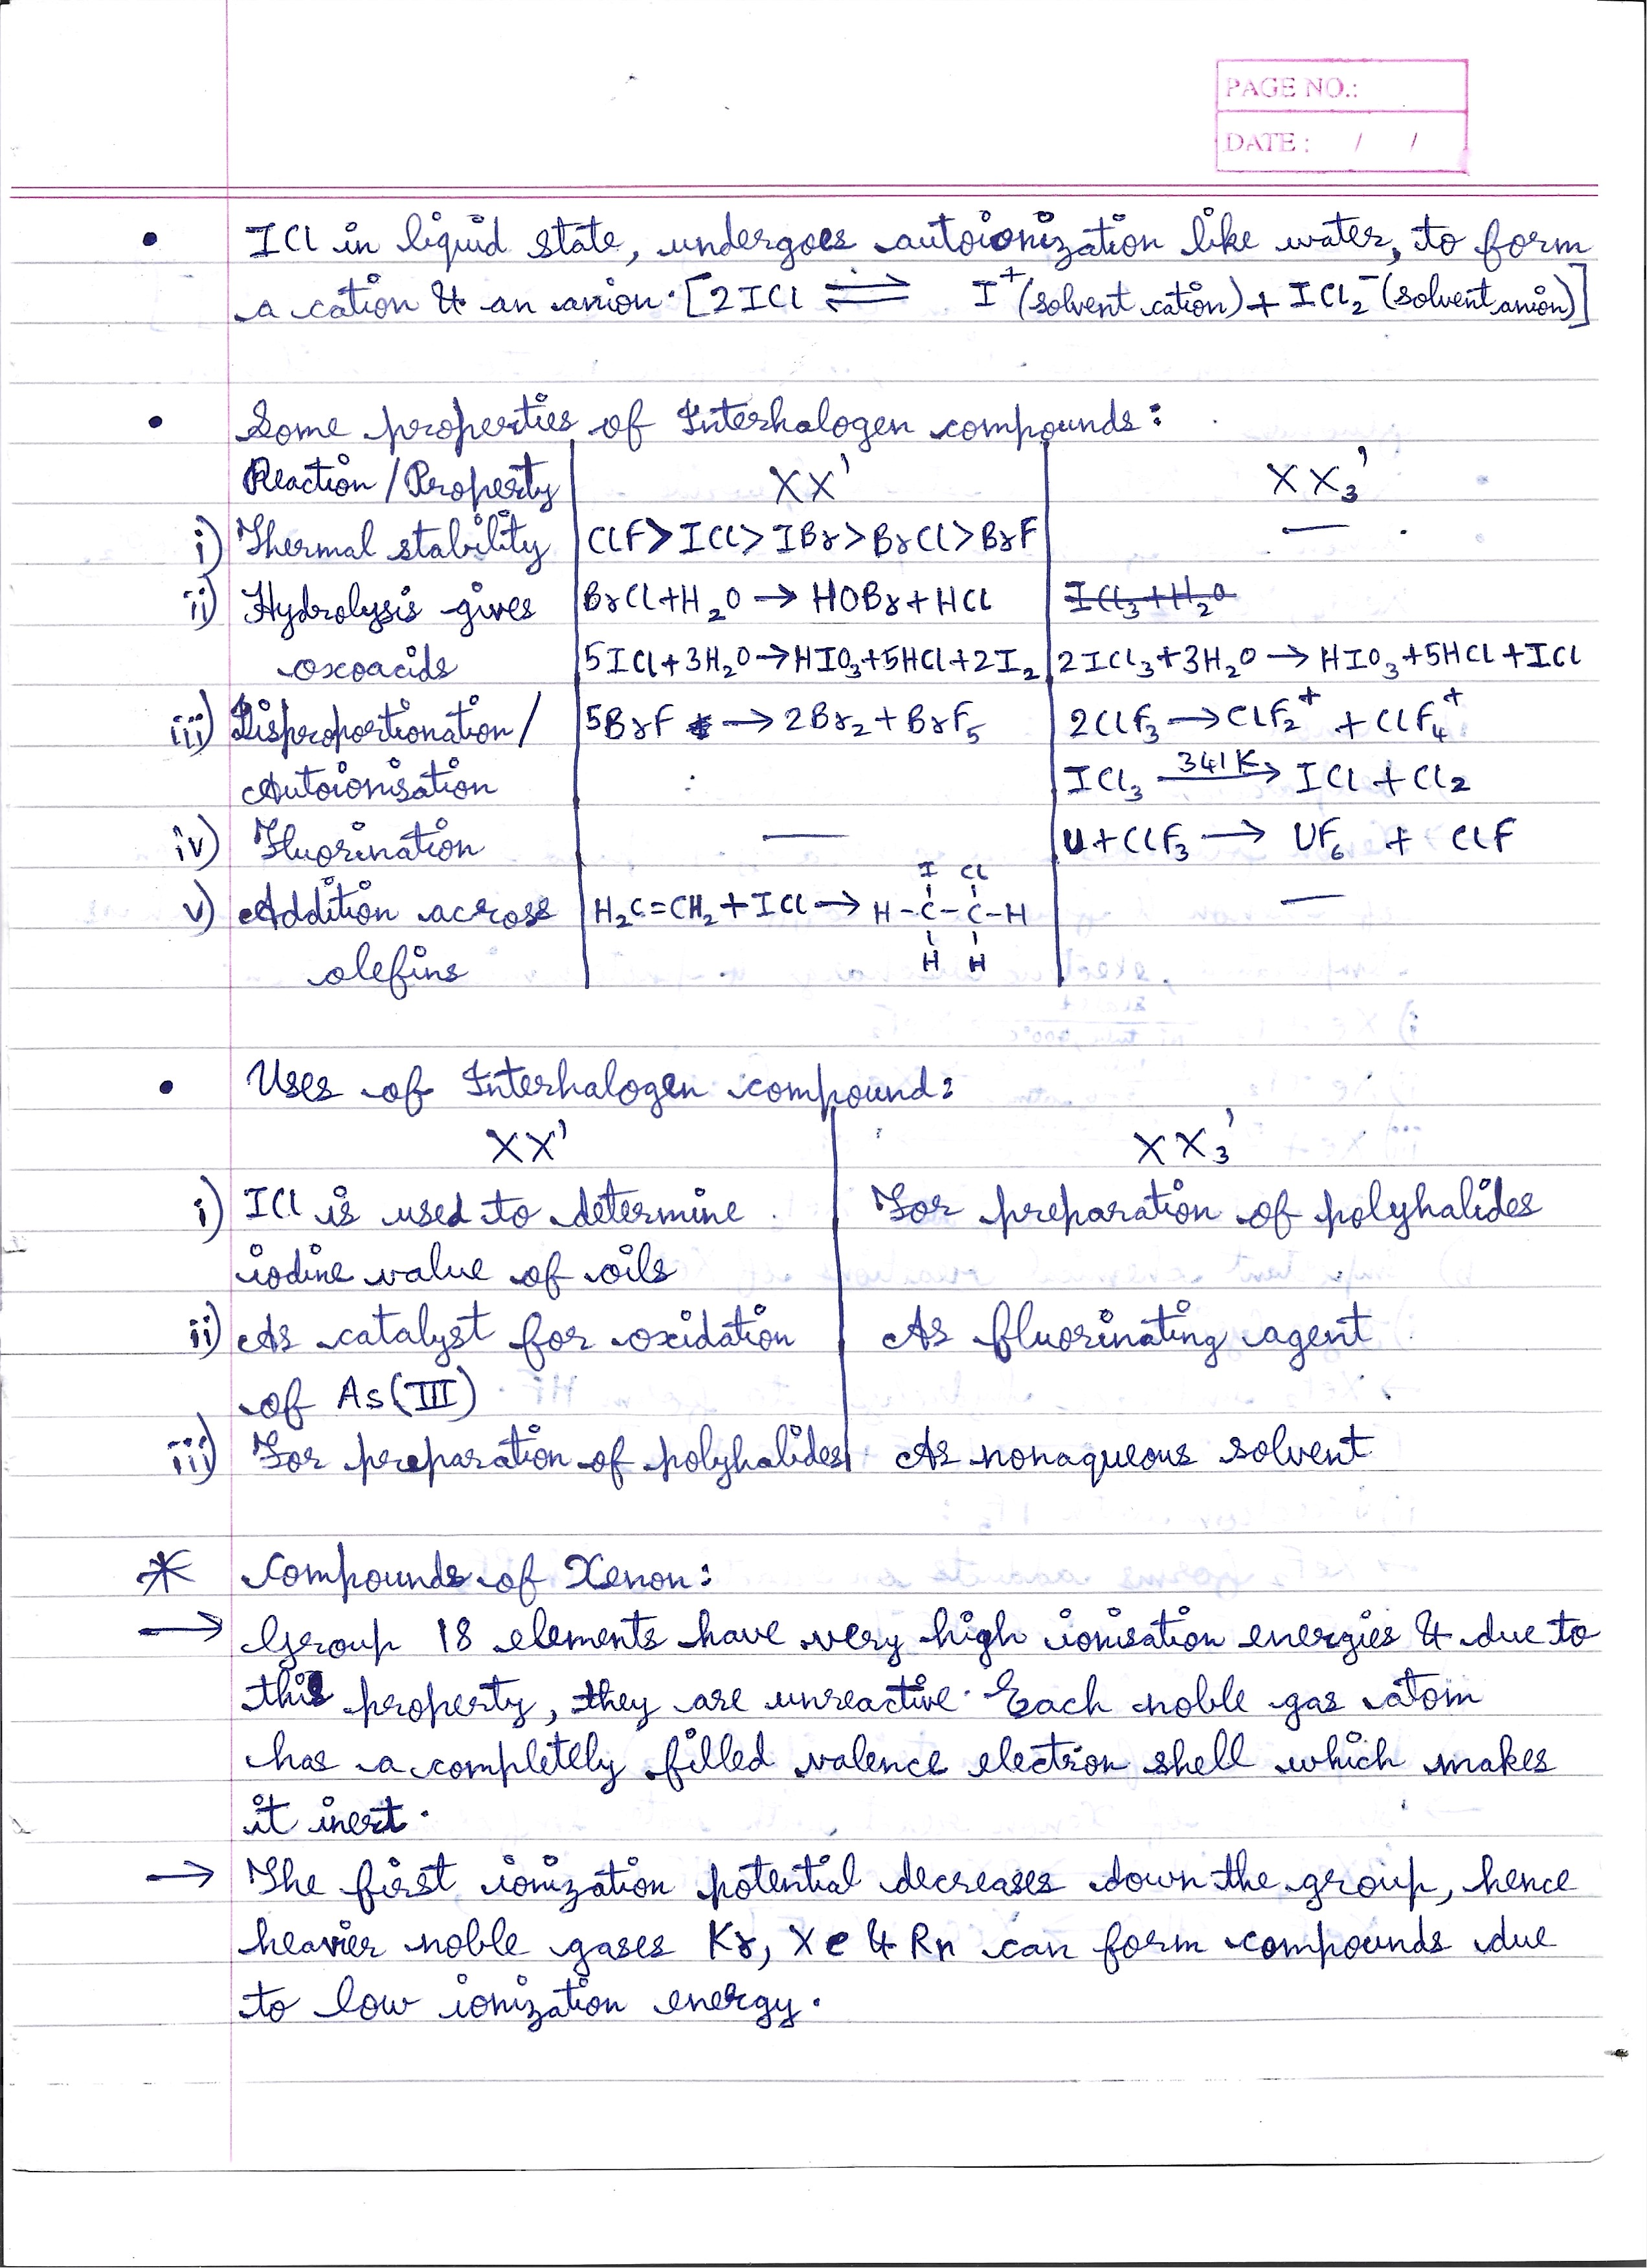 PAGE NO.:
DATE : / /
• ICl in liquid state, undergoes autoionization like water, to form
a cation & an anion. [2ICl ⇌ I⁺(solvent cation) + ICl₂⁻(solvent anion)]
• Some properties of Interhalogen compounds:
Reaction / Property | XX' | XX₃'
i) Thermal stability | ClF > ICl > IBr > BrCl > BrF | —
ii) Hydrolysis gives | BrCl + H₂O → HOBr + HCl | ~~ICl₃ + H₂O~~
oxoacids | 5ICl + 3H₂O → HIO₃ + 5HCl + 2I₂ | 2ICl₃ + 3H₂O → HIO₃ + 5HCl + ICl
iii) Disproportionation / | 5BrF → 2Br₂ + BrF₅ | 2ClF₃ → ClF₂⁺ + ClF₄⁺
Autoionisation | ICl₃ 341K→ ICl + Cl₂
iv) Fluorination | — | U + ClF₃ → UF₆ + ClF
I Cl
v) Addition across | H₂C=CH₂ + ICl → H-C-C-H | —
olefins | H H
• Uses of Interhalogen compound:
XX' | XX₃'
i) ICl is used to determine | For preparation of polyhalides
iodine value of oils
ii) As catalyst for oxidation | As fluorinating agent
of As(III)
iii) For preparation of polyhalides | As nonaqueous solvent
* Compounds of Xenon:
→ Group 18 elements have very high ionisation energies & due to
this property, they are unreactive. Each noble gas atom
has a completely filled valence electron shell which makes
it inert.
→ The first ionization potential decreases down the group, hence
heavier noble gases Kr, Xe & Rn can form compounds due
to low ionization energy.